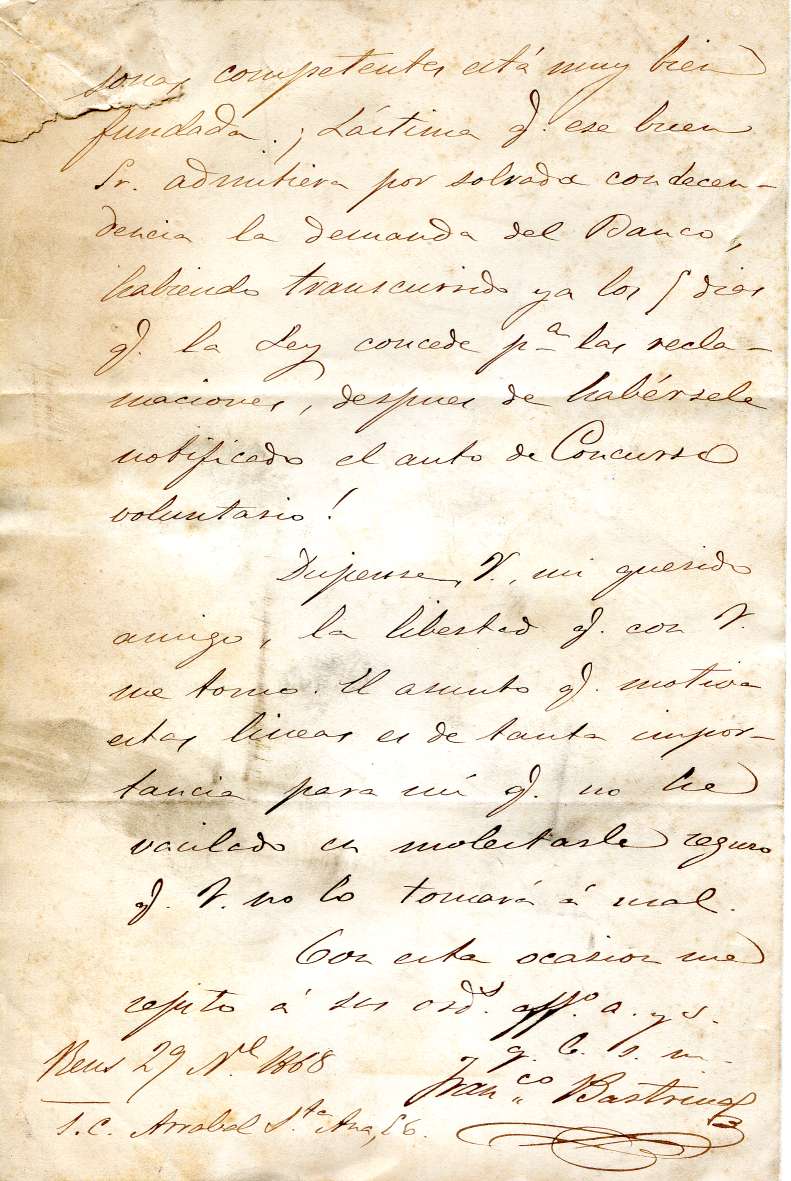 sonas competentes está muy bien
fundada. ¡Lástima q. ese buen
Sr. admitiera por sobrada condecen-
dencia la demanda del Banco,
habiendo transcurrido ya los 5 dias
q. la Ley concede pª las recla-
maciones, despues de habérsele
notificado el auto de Concurso
voluntario!
Dispense, V., mi querido
amigo, la libertad q. con V.
me tomo. El asunto q. motiva
estas lineas es de tanta impor-
tancia para mí q. no he
vacilado en molestarle seguro
q. V. no lo tomará á mal.
Con esta ocasion me
repito á sus ords. affº. a. y s.
q. b. s. m.
Reus 29 N.l 1868
Fran.co
S. C. Arrabal S.ta Ana, 56.